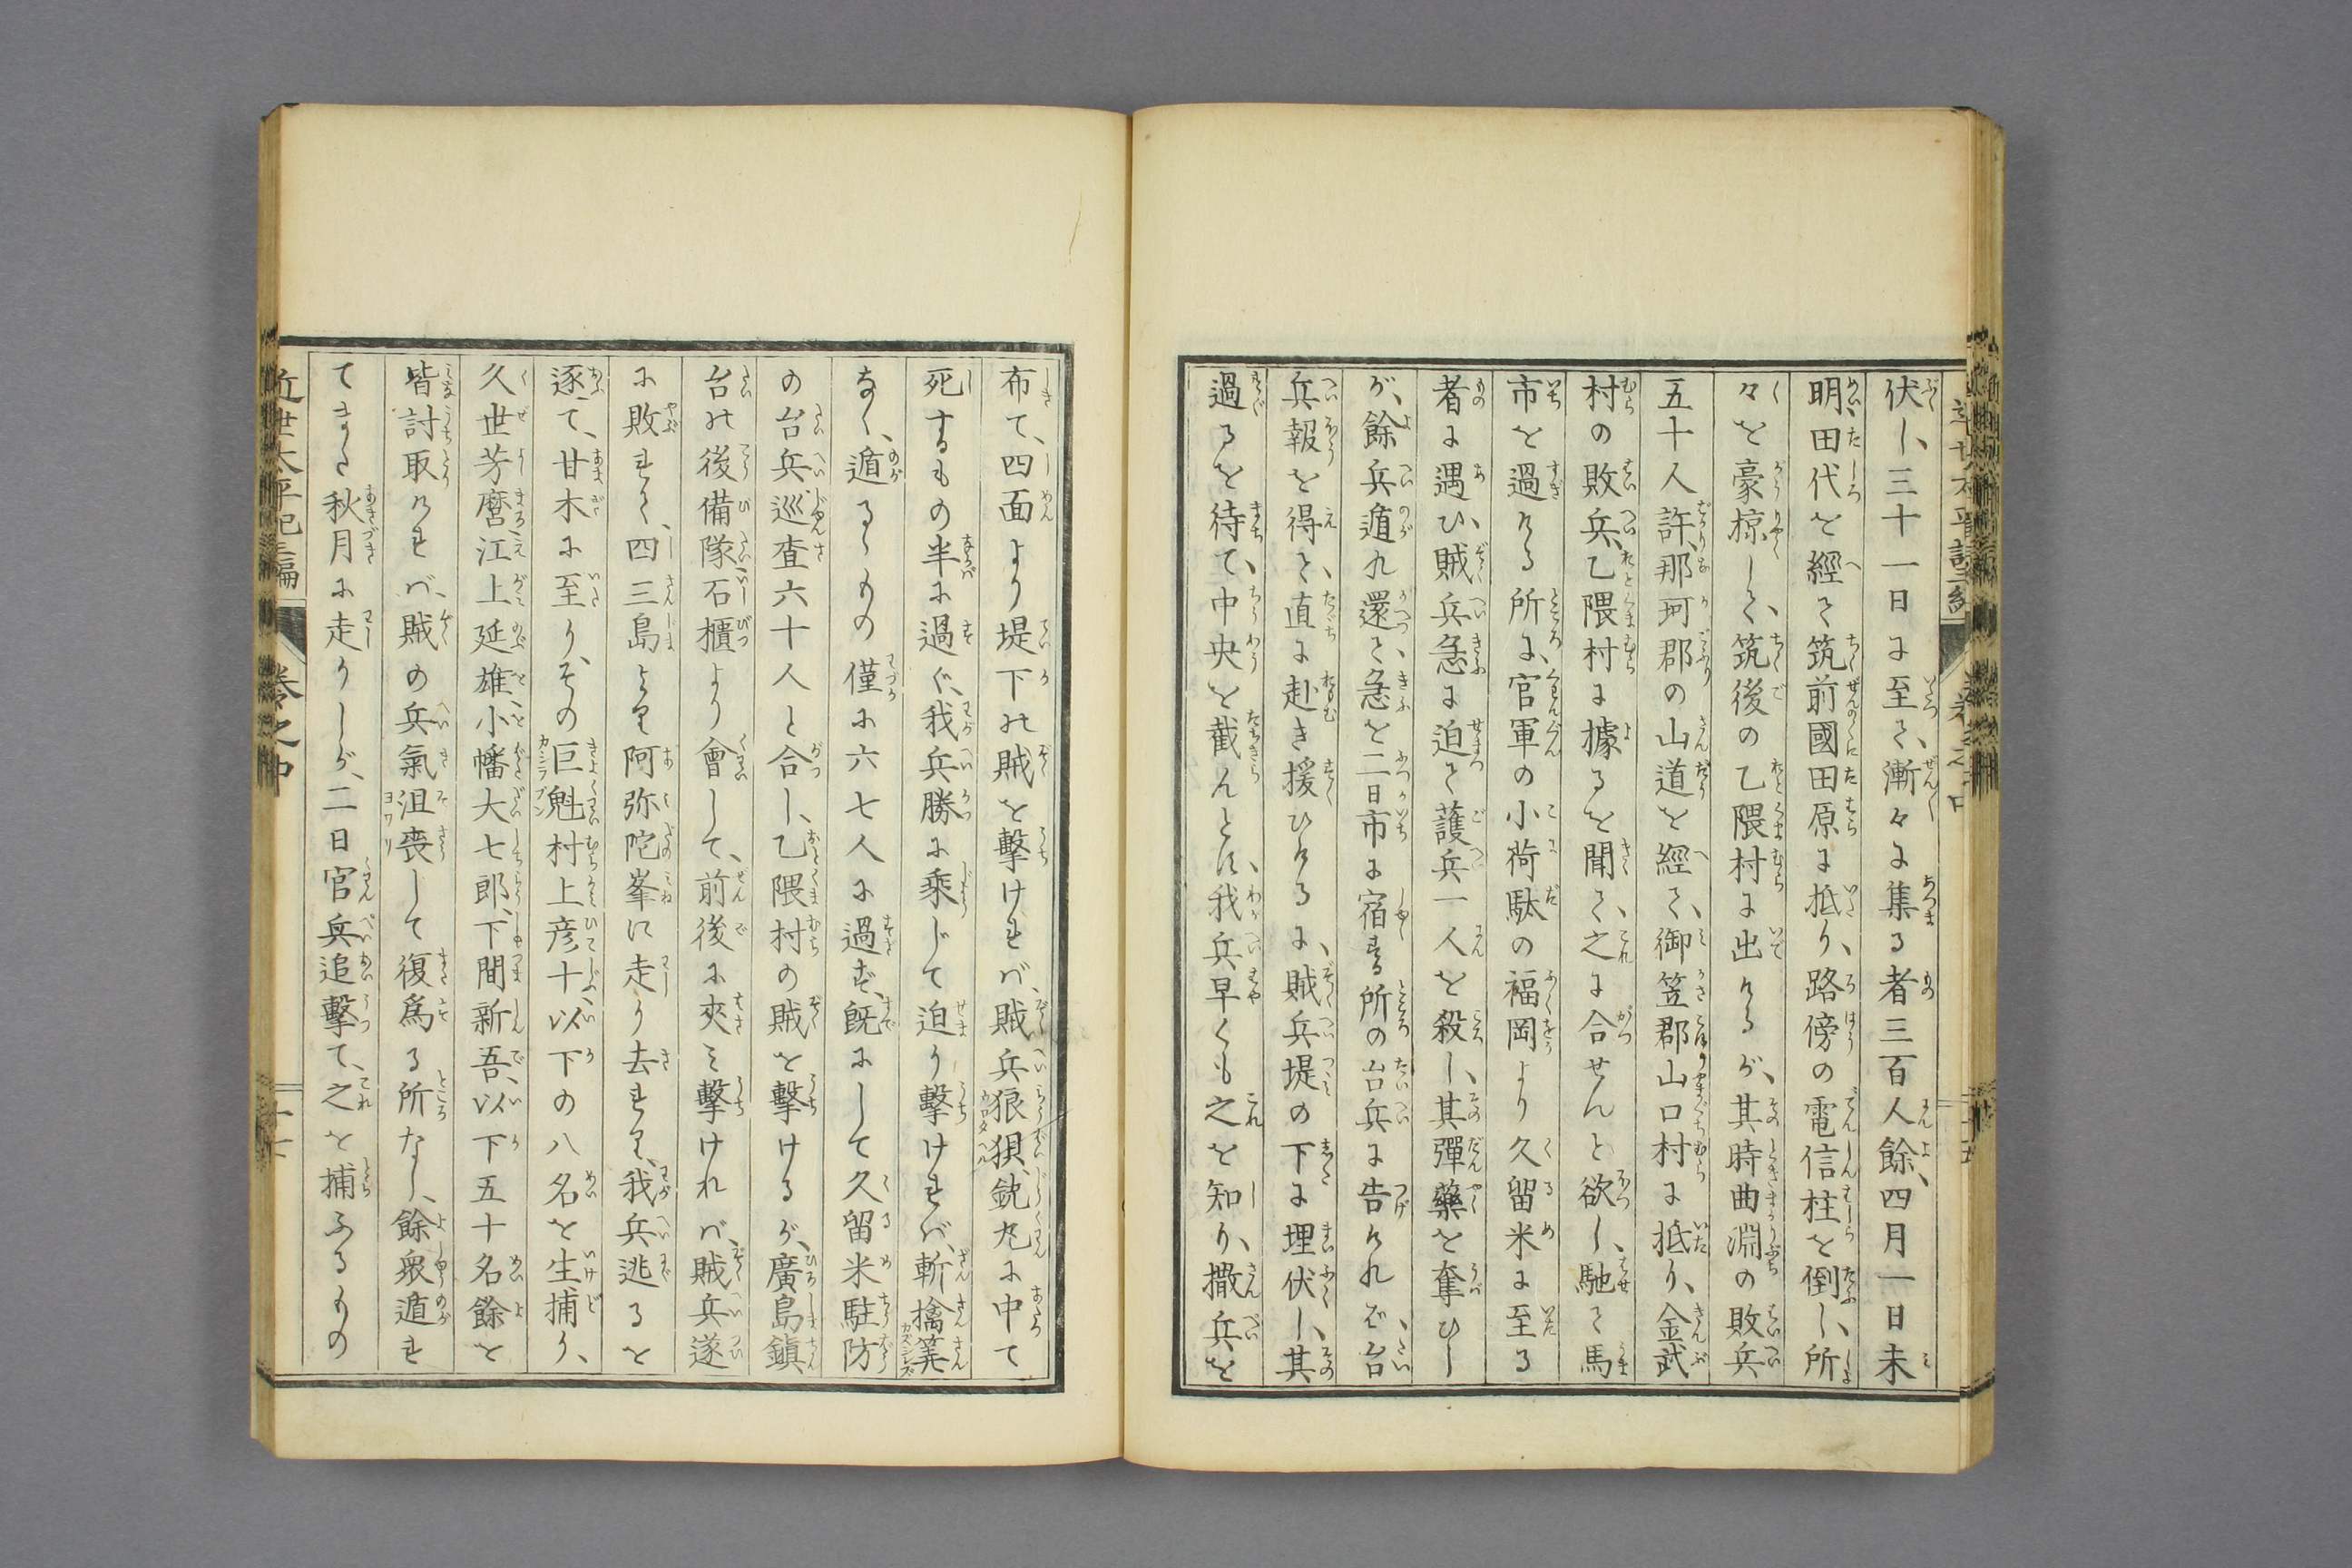 伏し、三十一日に至て、漸々に集る者三百人餘、四月一日未
明、田代を經て筑前國田原に抵り、路傍の電信柱を倒し、所
々を豪掠して、筑後の乙隈村に出けるが、其時曲淵の敗兵
五十人許、那珂郡の山道を經て、御笠郡山口村に抵り、金武
村の敗兵、乙隈村に據るを聞て、之に合せんと欲し、馳て馬
市を過ける所に、官軍の小荷駄の福岡より久留米に至る
者に遇ひ、賊兵急に迫て護兵一人を殺し、其彈藥を奪ひし
が、餘兵遁れ還て、急を二日市に宿する所の台兵に告ければ、台
兵報を得て、直に赴き援ひけるに、賊兵堤の下に埋伏し、其
過るを待て、中央を截んとす、我兵早くも之を知り、撒兵を
布て、四面より堤下の賊を擊ければ、賊兵狼狽、銃丸に中て
死するもの半に過ぐ、我兵勝に乘じて迫り擊ければ、斬擒筭
なく、遁るゝもの僅に六七人に過ず、既にして久留米駐防
の台兵、巡査六十人と合し、乙隈村の賊を擊けるが、廣島鎭
台の後備隊石櫃より會して、前後に夾み擊ければ、賊兵遂
に敗れて、四三島より阿弥陀峯に走り去れり、我兵逃るを
逐て、甘木に至り、その巨魁村上彦十、以下の八名を生捕り、
久世芳麿、江上延雄、小幡大七郎、下間新吾、以下五十名餘を
皆討取ければ、賊の兵氣沮喪して復爲る所なし、餘衆遁れ
てまた秋月に走りしが、二日官兵追擊て、之を捕ふるもの
近世太平記三編　卷之中